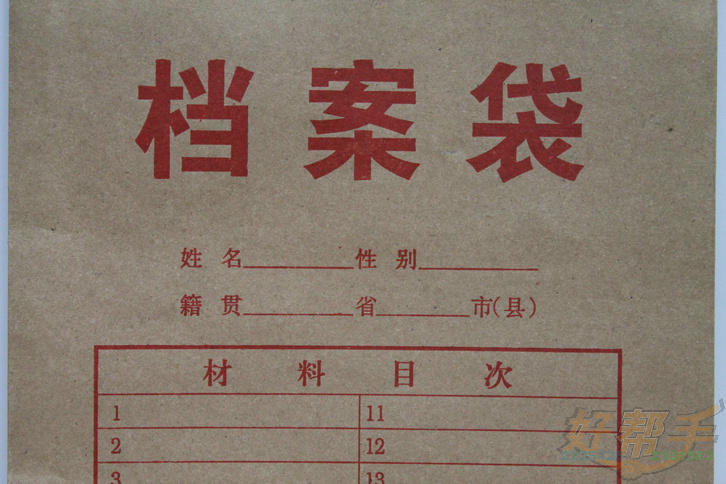 档案袋
姓 名________性 别________
籍 贯________省________市(县)
材 料 目 次
1 11
2 12
3 13
好帮手